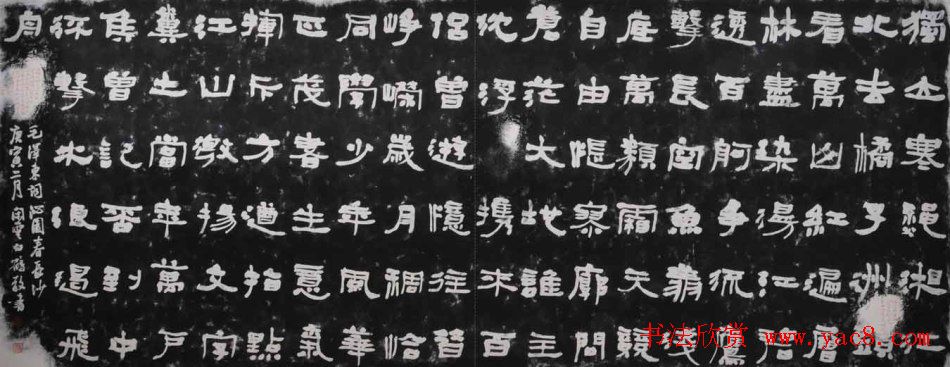 獨立寒秋湘江
北去橘子洲頭
看萬山紅遍層
林盡染漫江碧
透百舸爭流鷹
擊長空魚翔淺
底萬類霜天競
自由悵寥廓問
蒼茫大地誰主
沈浮攜來百
侶曾遊憶往昔
崢嶸歲月稠恰
同學少年風華
正茂書生意氣
揮斥方遒指點
江山激揚文字
糞土當年萬戶
侯曾記否到中
流擊水浪遏飛
舟
毛澤東詞沁園春長沙
庚寅二月
书法欣赏
www.yac8.com